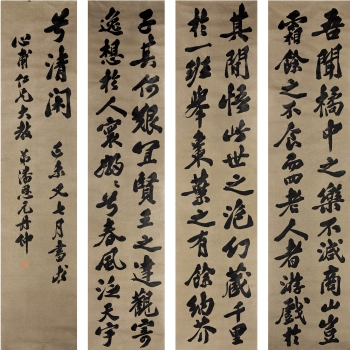 吾聞橘中之樂不減商山豈
霜餘之不食而四老人者游戲於
其間悟此世之泡幻藏千里
於一班舉棗葉之有餘納芥
子其何艱宜賢王之達觀寄
逸想於人寰嫋嫋兮春風泛天宇
兮清闲 己未又七月書
心甫仁兄大教 弟潘恩元丹仲